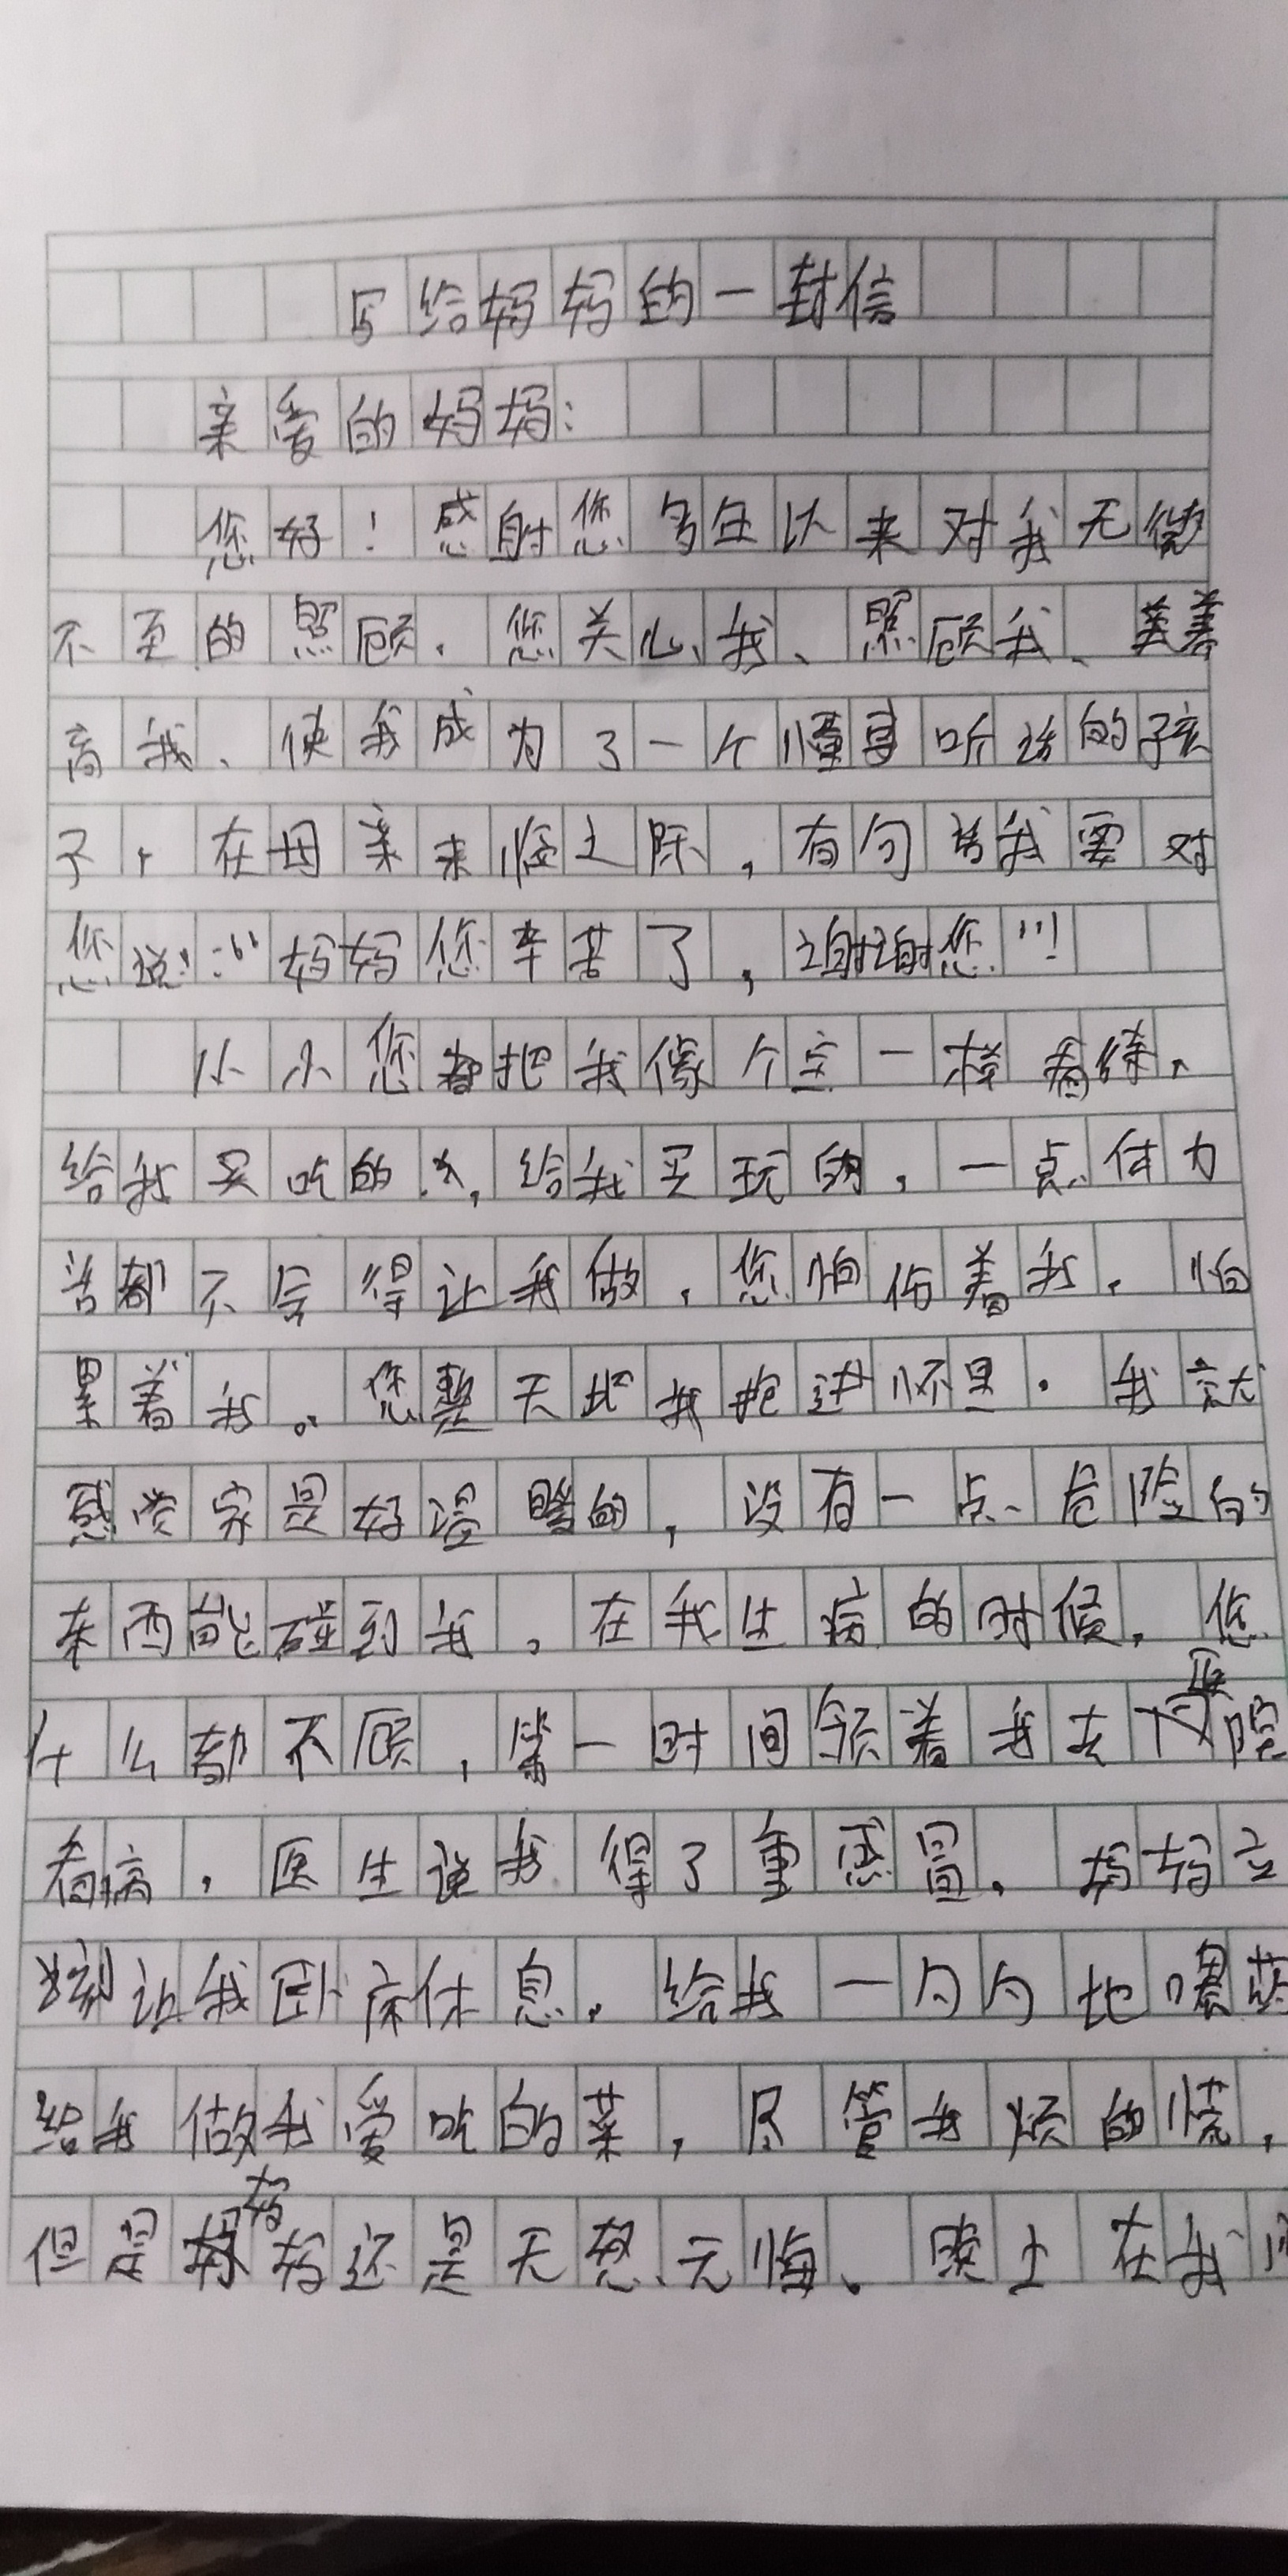 写给妈妈的一封信
亲爱的妈妈:
您好!感射您多年以来对我无微
不至的照顾.您关心我、照顾我、
高我、使我成为了一个懂事听话的孩
子,在母亲来临之际,有句话我需对
您说!:“妈妈您辛苦了,谢谢您”!
小小您都把我像个宝一样看待,
给我买吃的,给我买玩的,一点体力
活都不舍得让我做,您怕伤着我,怕
累着我。您整天把我抱进怀里.我就
感觉家是好温暖的,没有一点危险的
东西能碰到我,在我生病的时候,您
什么都不顾,第一时间领着我去医院
看病,医生说我得了重感冒,妈妈立
刻让我卧床休息,给我一勺勺地喂药
给我做我爱吃的菜,尽管我烦的慌,
但是妈妈还是无怨无悔、晚上在我